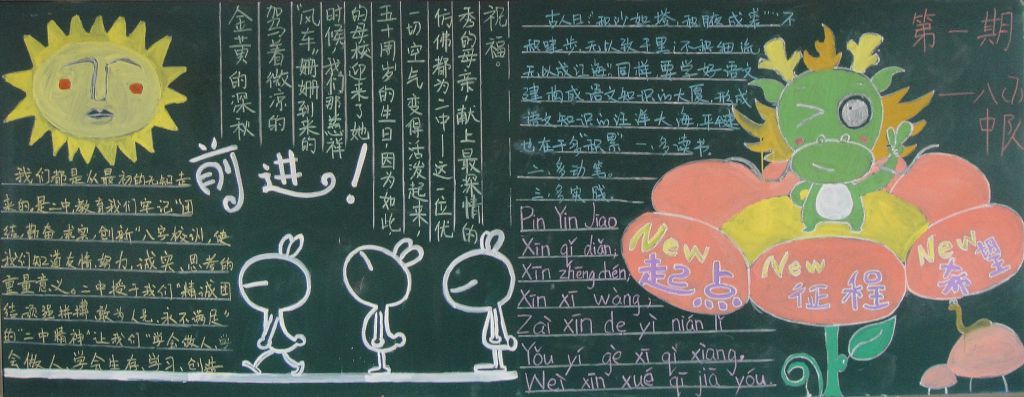 第一期
八(1)
中队
古人曰"积沙如塔,积腋成裘"不
积跬步,无以致千里;不积细流,
无以成江海"同样,要学好语文
建构成语文知识的大厦,形成
语文知识的汪洋大海,平时
也在于"积累"一、多读书。
二、多动笔。
三、多实践。
Pin Yin Jiao
Xīn qǐ diǎn,
Xīn zhēng chéng,
Xīn xī wàng;
Zaì xīn de yì nián lǐ
Yǒu yí gè xī qì xiàng.
Weì xīn xué qī jiā yóu.
New
起点
New
征程
New
希望
金黄的深秋
驾着微凉的
"风车"姗姗到来的
时候,我们那慈祥
的母校迎来了她
五十周岁的生日,因为如此
一切空气变得活发起来,
仿佛都为二中——这一位优
秀的母亲,献上最深情的
祝福。
前进!
我们都是从最初的无知走
来的,是二中教育我们牢记"团
结,勤奋,求实,创新"八字校训,使
我们知道友情,努力,诚实,思考的
重量意义。二中授于我们"精诚团
结,顽强拼搏,敢为人先,永不满足"
的"二中精神"让我们"学会做人,学
会做人,学会生存,学习,创造